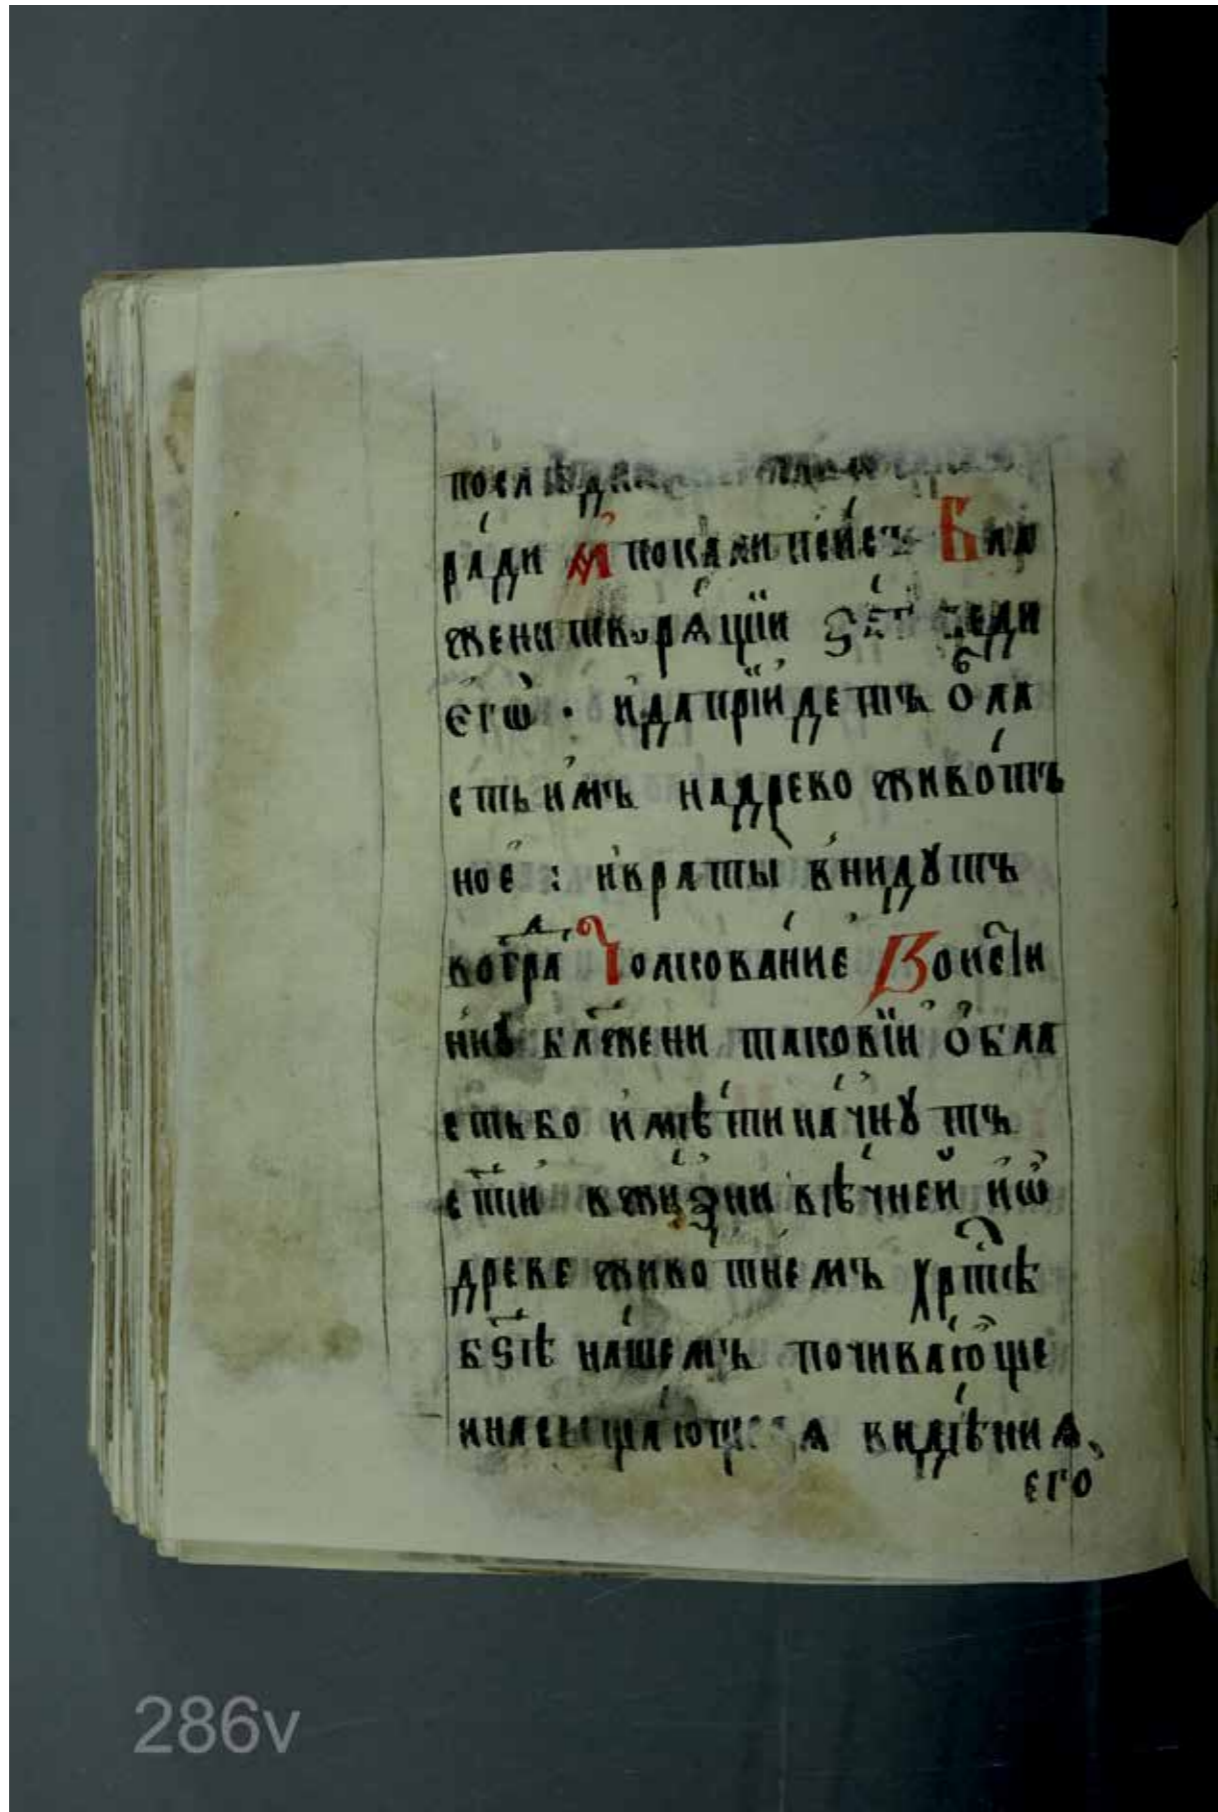 ра́ди А҆покали́ѱисъ Бла
жени творѧ́щїи за́поведи
єгѡ̀ · и҆да прїи́детъ ѻ҆бла
сть и҆́мъ надрево живо́тъ
ноѐ : и҆враты̀ вни́дꙋтъ
вогра́дъ Толкова́ние Вои́сти
ннꙋ бл҃жени таковїи ѻ҆бла
стьво и҆мѣ́ти на́чнꙋтъ
ст҃і́и вжи́зни вѣ́чней и҆ѡ҆
древе живо́тнемъ хр҃тѣ̀
бз҃ѣ на́шемъ почива́юще
инасыща́ющесѧ видѣ́ниѧ
єго̀
286v